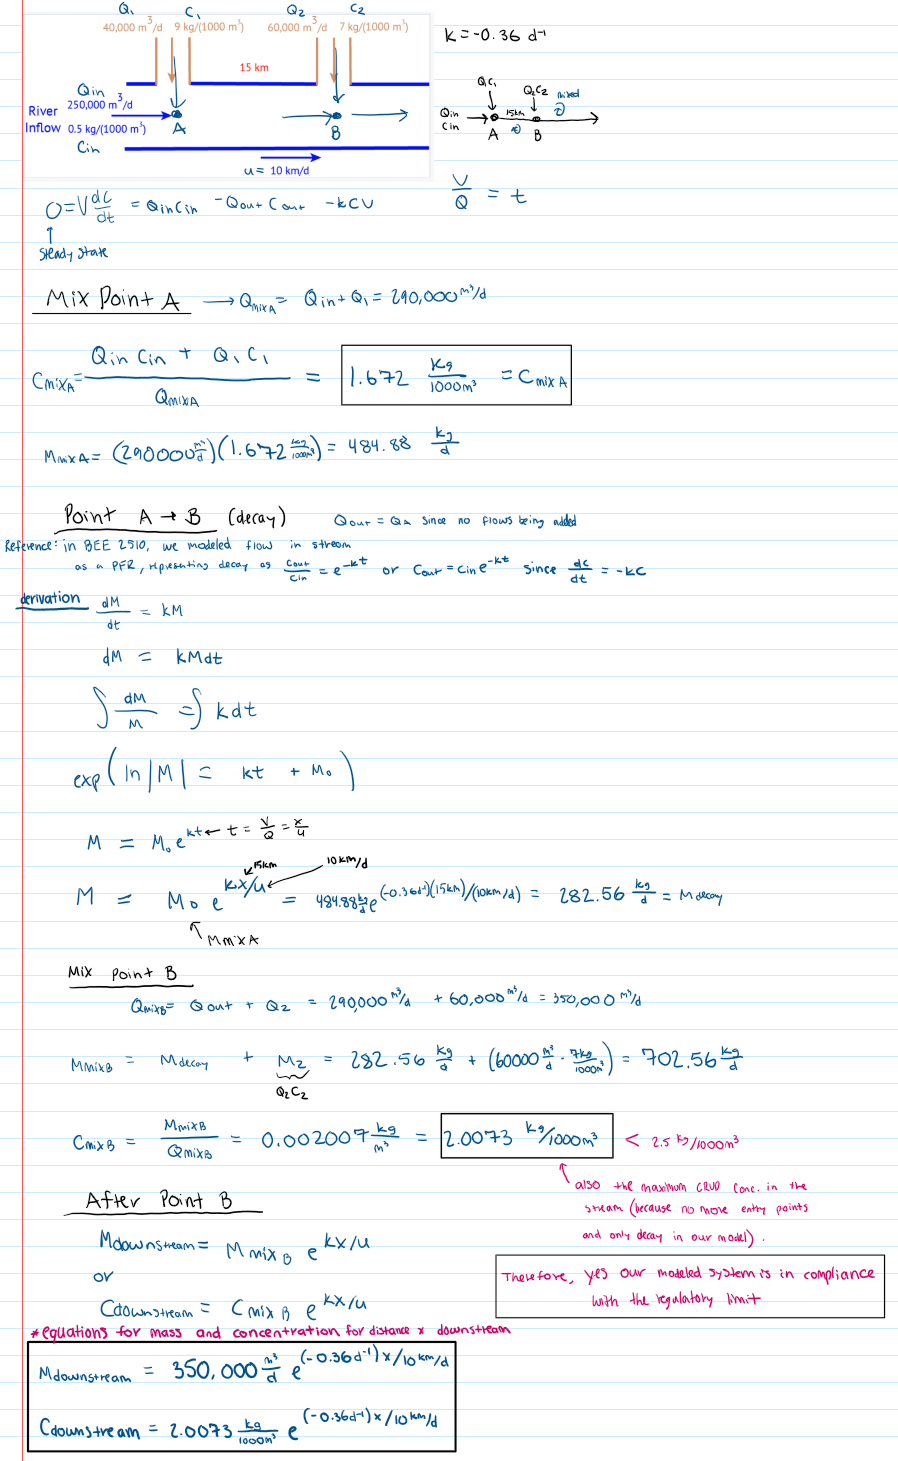 Q₁ C₁ Q₂ C₂
40,000 m³/d 9 kg/(1000 m³) 60,000 m³/d 7 kg/(1000 m³)
k = -0.36 d⁻¹
15 km
Qin
250,000 m³/d
River
Inflow 0.5 kg/(1000 m³)
Cin
A
B
u = 10 km/d
Q₁C₁
Q₂C₂
mixed
Qin
Cin
15km
A B
V/Q = t
0 = V dc/dt = QinCin - Qout Cout - kCV
↑
Steady State
Mix Point A → QmixA = Qin + Q₁ = 290,000 m³/d
CmixA = (Qin Cin + Q₁ C₁)/QmixA = 1.672 kg/1000m³ = CmixA
MmixA = (290000 m³/d)(1.672 kg/1000m³) = 484.88 kg/d
Point A → B (decay) Qout = QA since no flows being added
Reference: in BEE 2510, we modeled flow in stream
as a PFR, representing decay as Cout/Cin = e^-kt or Cout = Cin e^-kt since dc/dt = -kC
derivation dM/dt = kM
dM = kMdt
∫ dM/M = ∫ kdt
exp(ln|M| = kt + M₀)
M = M₀e^kt ← t = V/Q = x/u
15km 10km/d
M = M₀ e^kx/u = 484.88 kg/d e^(-0.36d⁻¹)(15km)/(10km/d) = 282.56 kg/d = Mdecay
MmixA
Mix Point B
QmixB = Qout + Q₂ = 290,000 m³/d + 60,000 m³/d = 350,000 m³/d
MmixB = Mdecay + M₂ = 282.56 kg/d + (60000 m³/d · 7kg/1000m³) = 702.56 kg/d
Q₂C₂
CmixB = MmixB/QmixB = 0.002007 kg/m³ = 2.0073 kg/1000m³ < 2.5 kg/1000m³
also the maximum CRUD conc. in the
stream (because no more entry points
and only decay in our model).
After Point B
Mdownstream = MmixB e^kx/u
or
Cdownstream = CmixB e^kx/u
Therefore, yes our modeled system is in compliance
with the regulatory limit
*equations for mass and concentration for distance x downstream
Mdownstream = 350,000 m³/d e^(-0.36d⁻¹)x/10km/d
Cdownstream = 2.0073 kg/1000m³ e^(-0.36d⁻¹)x/10km/d